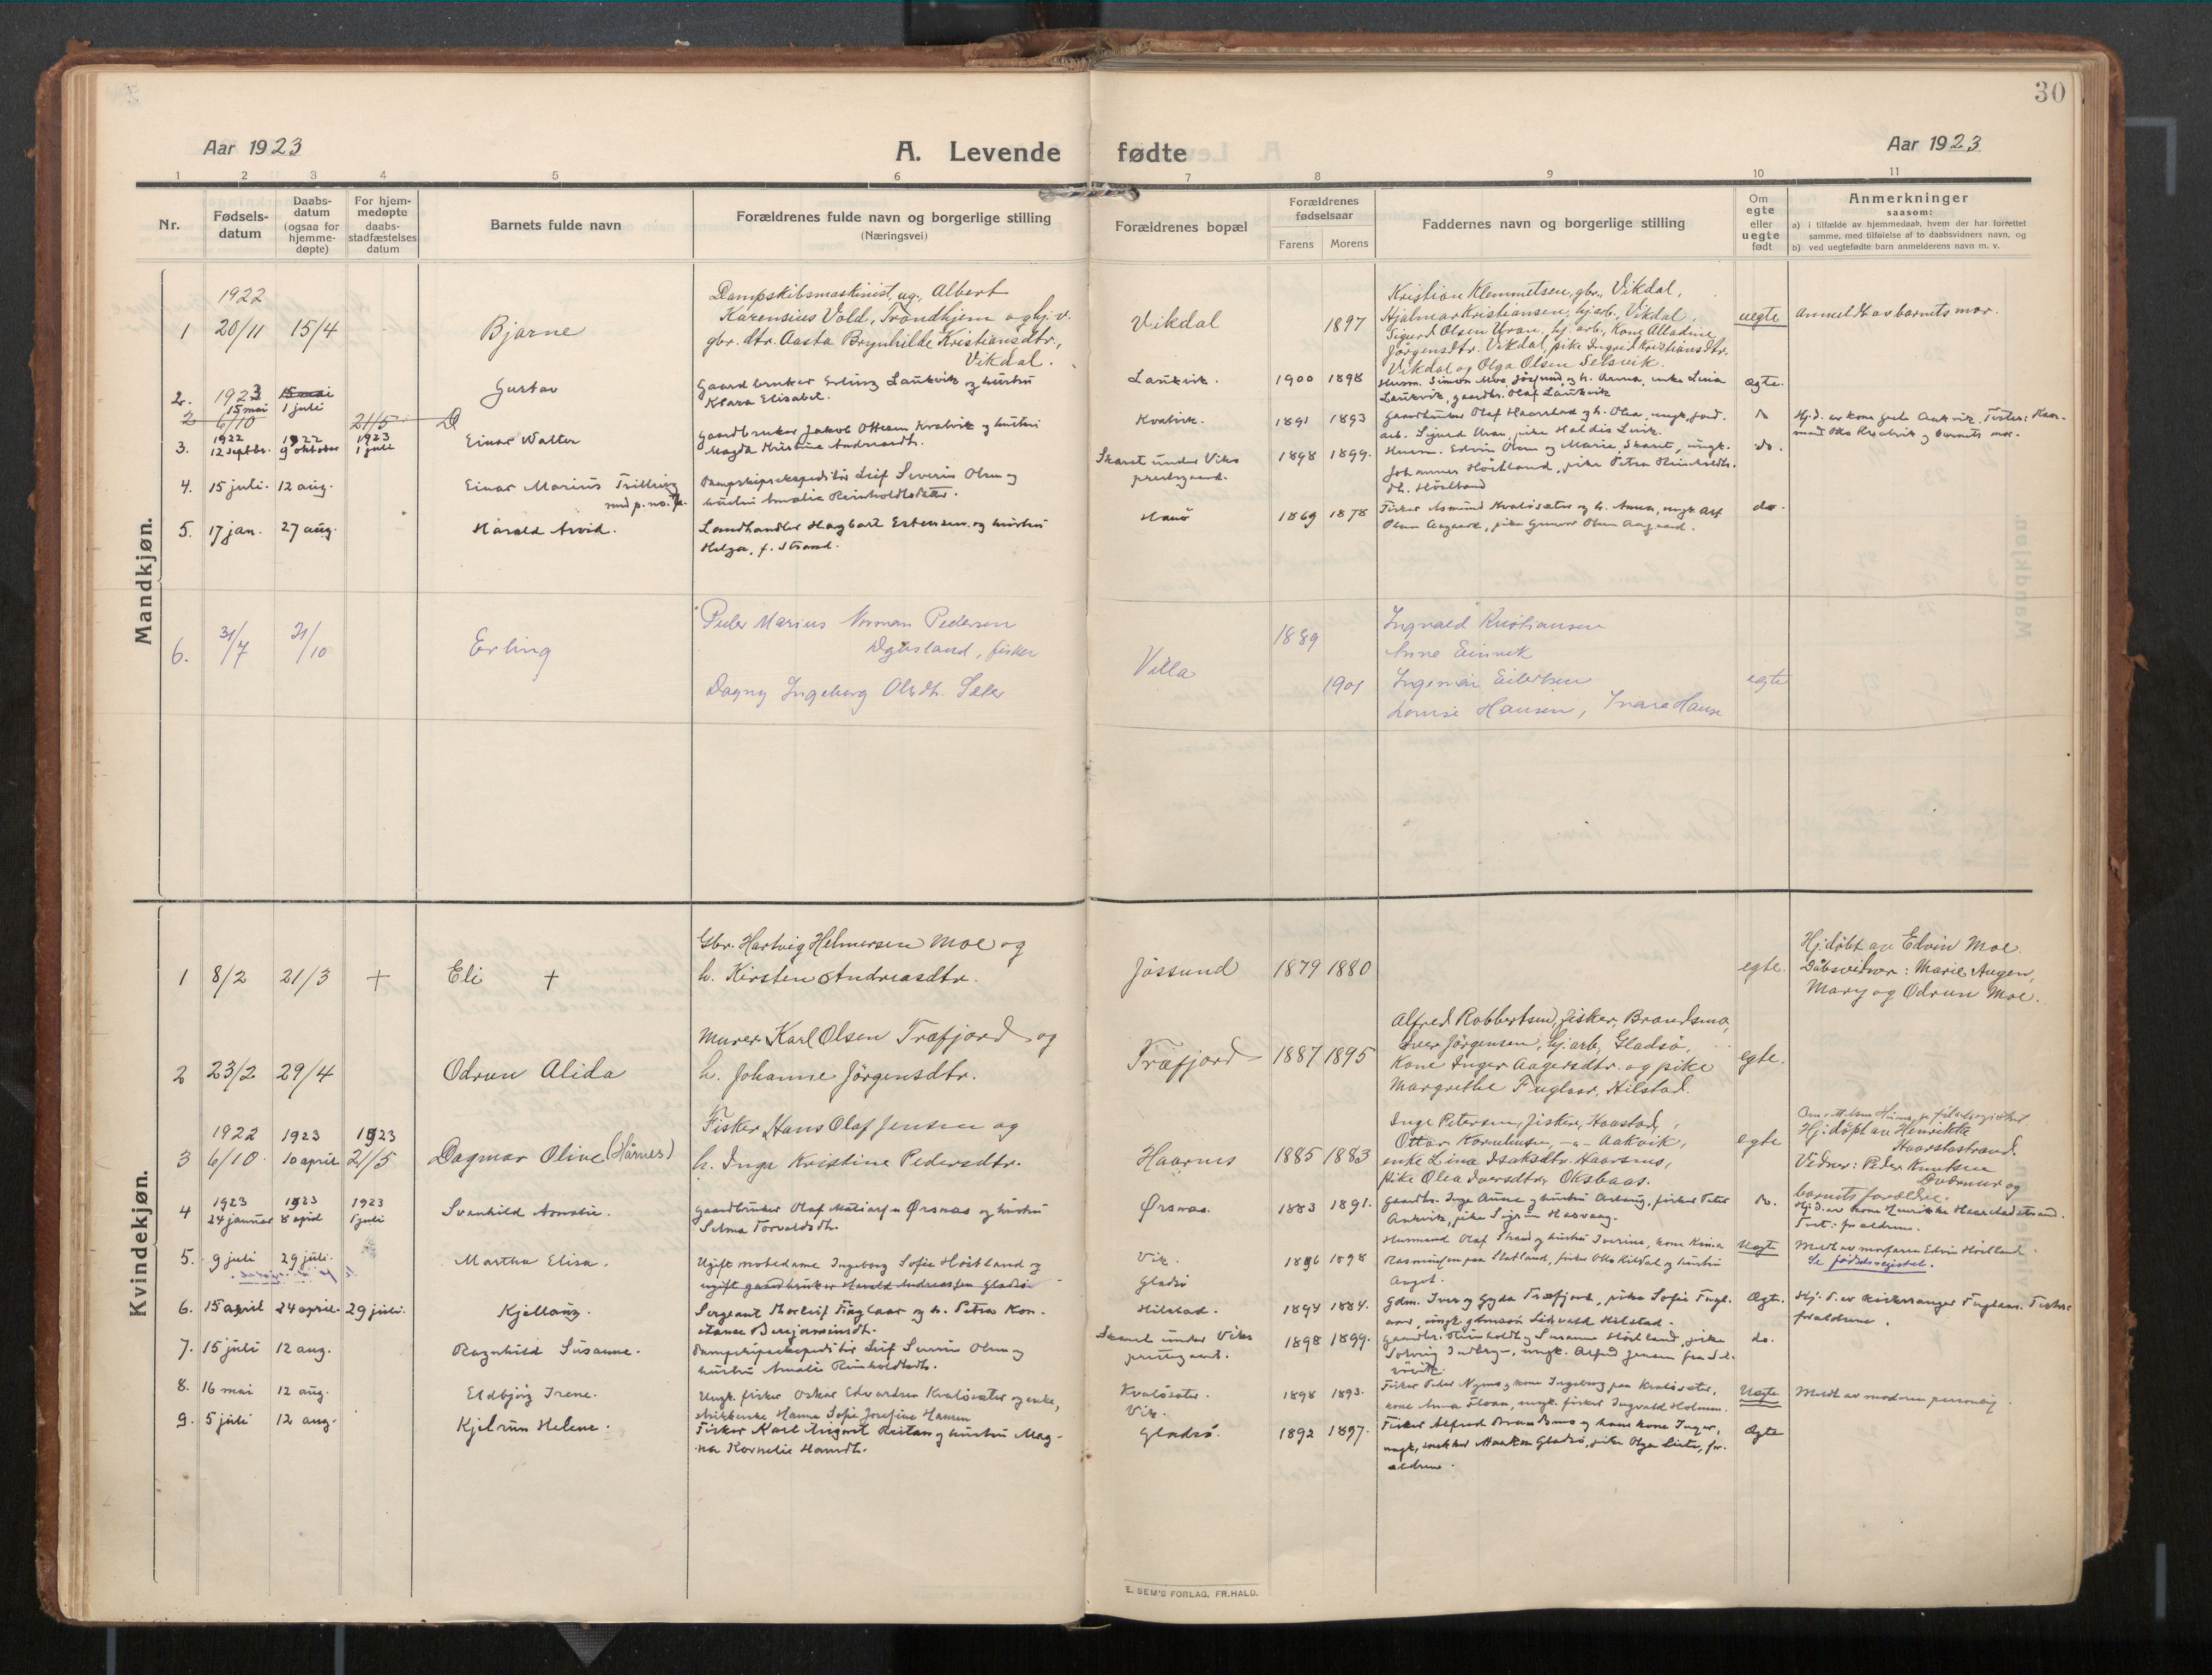 30
Aar 1923
A. Levende fødte
Aar 1923
1 2 3 4 5 6 7 8 9 10 11
Nr.
Fødsels-
datum
Daabs-
datum
(ogsaa for
hjemme-
døpte)
For hjem-
medøpte
daabs-
stadfæstelses
datum
Barnets fulde navn
Forældrenes fulde navn og borgerlige stilling
(Næringsvei)
Forældrenes bopæl
Forældrenes
fødselsaar
Farens Morens
Faddernes navn og borgerlige stilling
Om
egte
eller
uegte
født
Anmerkninger
saasom:
a) i tilfælde av hjemmedaab, hvem der har forrettet
samme, med tilføielse af to daabsvidners navn, og
b) ved uegtefødte barn anmelderens navn m. v.
Mandkjøn.
1922
1 20/11 15/4 Bjarne
Dampskibsmaskinist, ug., Albert
Karensius Vold, Trondhjem og hj. v.
gbr. dtr. Aasta Brynhilde Kristiansdtr.,
Vikdal.
Vikdal 1897
Kristian Klemmetsen, gbr., Vikdal,
Hjalmar Kristiansen, hj. arb., Vikdal,
Sigurd Olsen Uran, hj. arb., Kone Alladine
Jörgensdtr. Vikdal, pike Ingrid Kristiansdtr.
Vikdal og Olga Olsen Selsvik.
uegte anmeldt av barnets mor.
2. 1923 15 mai
15 mai 1 juli
Gustav
Gaardbruker Erling Laukvik og hustru
Klara Elisabet.
Laukvik. 1900 1898
Husm. Simon Moe, Jössund, og h. Anna, enke Lina
Laukvik, gaardbr. Olaf Laukvik
ægte.
2 6/10 21/5 D
3. 1922 1922 1923
12 septbr. 9 oktober 1 juli
Einar Walter
Gaardbruker Jakob Ottesen Kvalvik og hustru
Magda Kristine Andreasdt.
Kvalvik. 1891 1893
Gaardbruker Olaf Haarstad og h. Olea, ungk., jord.
arb. Sigurd Uran, pike Haldis Lvik.
do
Hj. d. av kone Gurli Aakvik. Tester:
Otto Kvalvik og barnets mor.
4. 15 juli. 12 aug. Einar Marius Trilling
med p. no. 7.
Dampskipsekspeditör Leif Severin Olsen og
hustru Amalie Reinholdtsdatter.
Skaret under Viks
prestegaard.
1898 1899.
Husm. Edvin Olsen og Marie, Skaret, ungk.
Johannes Höstland, pike Petra Reinholdts-
dt. Höstland
do.
5. 17 jan. 27 aug. Harald Arvid.
Landhandler Hagbart Estensen og hustru
Helga, f. Strand.
1869 1878
Fisker Asmund Kvalösæter og h. Anna, ungk. Alf
Olsen Aargaard, pike Gunvor Olsen Aargaard.
do.
6. 31/7 21/10 Erling
Peder Marius Norman Pedersen
Dypsland, fisker
Dagny Ingeborg Olsdt. Sæter
Villa 1889 1901
Ingvald Kristiansen
Anne Einvik
Ingemar Eilertsen
Louise Hansen, Hansen
egte
Kvindekjøn.
1 8/2 21/3 + Eli +
Gbr. Hartvig Helmersen Moe og
h. Kirsten Andreasdtr.
Jössund 1879 1880
egte.
Hj. döbt av Edvin Moe.
Dåbsvidner: Marie Augen,
Mary og Odrun Moe.
2 23/2 29/4 Odrun Alida
Murer Karl Olsen Træfjord og
h. Johanne Jörgensdtr.
Træfjord 1887 1895
Alfred Robbertsen, fisker, Brandsmo,
Iver Jörgensen, hj. arb., Gladsö,
Kone Inger Aagersdtr. og pike
Margrethe Fuglaar, Hilstad.
egte.
1922 1923 1923
3 6/10 10 april 21/5 Dagmar Olive (Hårnes)
Fisker Hans Olaf Jensen og
h. Inga Kristine Pedersdtr.
Haarnes 1885 1883
Inge Petersen, fisker, Haastad,
Ottar Korneliusen, -"- Aakvik,
enke Lina Isaksdtr. Haarsnes,
Pike Olea Iversdtr., Oksbaas.
egte
Hj. döpt av Henrikke
Haarstastrand.
Vidner: Peder Knutsen
Dværmur og
barnets forældre.
4 1923 1923 1923
24 januar 8 april 1 juli
Svanhild Amalie.
Gaardbruker Olaf Matiasen Ørsnes og hustru
Selma Torvaldsdt.
Ørsnes. 1883 1891.
Gaardbr. Inge Aune og hustru Aslaug, fisker Peter
Aakvik, pike Sigrun Hasvaag.
do.
Hj. d. av kone Henrikke Haarstadstrand.
Test: forældrene.
5. 9 juli 29 juli. Martha Elisa.
Ugift motedame Ingeborg Sofie Höstland og
ugift gaardbruker Harald Andreassen Gladsö.
Vik.
Gladsö
1896 1898
Husmand Olaf Strand og hustru Iverine, kone Kinia
Rasmussen paa Slotland, fisker Otto Kildal og hustru
Angot.
Uegte
Meldt av morfaren Edvin Höstland.
Se födselsregistret.
6. 15 april 24 april. 29 juli. Kjellaug.
Sergeant Thorleif Fuglaar og h. Petra Kon-
stanse Benjaminsdt.
Hilstad. 1894 1884.
Gdm. Iver og Gyda Træfjord, pike Sofie Fugl-
aar, ungk. gbmssön Sidvald Hilstad.
Ægte.
Hj. d. av kirkesanger Fuglaar. Tester:
forældrene.
7. 15 juli 12 aug. Ragnhild Susanne.
Dampskipsekspeditör Leif Severin Olsen og
hustru Amalie Reinholdtsdt.
Skaret under Viks
prestegaard.
1898 1899.
Gaardbr. Reinholdt og Susanne Höstland, pike
Solveig Indberg, ungk. Alfred Jensen fra Sel-
növik.
do.
8. 16 mai 12 aug. Eldbjörg Irene.
Ungk. fisker Oskar Edvardsen Kvalösæter og enke,
strikkerske Hanna Sofie Josefine Hansen
Kvalösæter.
Vik.
1898 1893.
Fisker Peder Nyms og kone Ingeborg paa Kvalösæter,
kone Anna Floan, ungk. fisker Ingvald Holmen.
Uegte
Meldt av moderen personlig.
9. 5 juli 12 aug. Kjelrun Helene.
Fisker Karl August Reitan og hustru Mag-
na Kornelie Hansdt.
Gladsö. 1892 1897.
Fisker Alfred Brandsmo og hans kone Inger,
ungk. snekker Haakon Gladsö, pike Olga Lister, for-
ældrene.
Ægte
E. SEM'S FORLAG, FR.HALD.